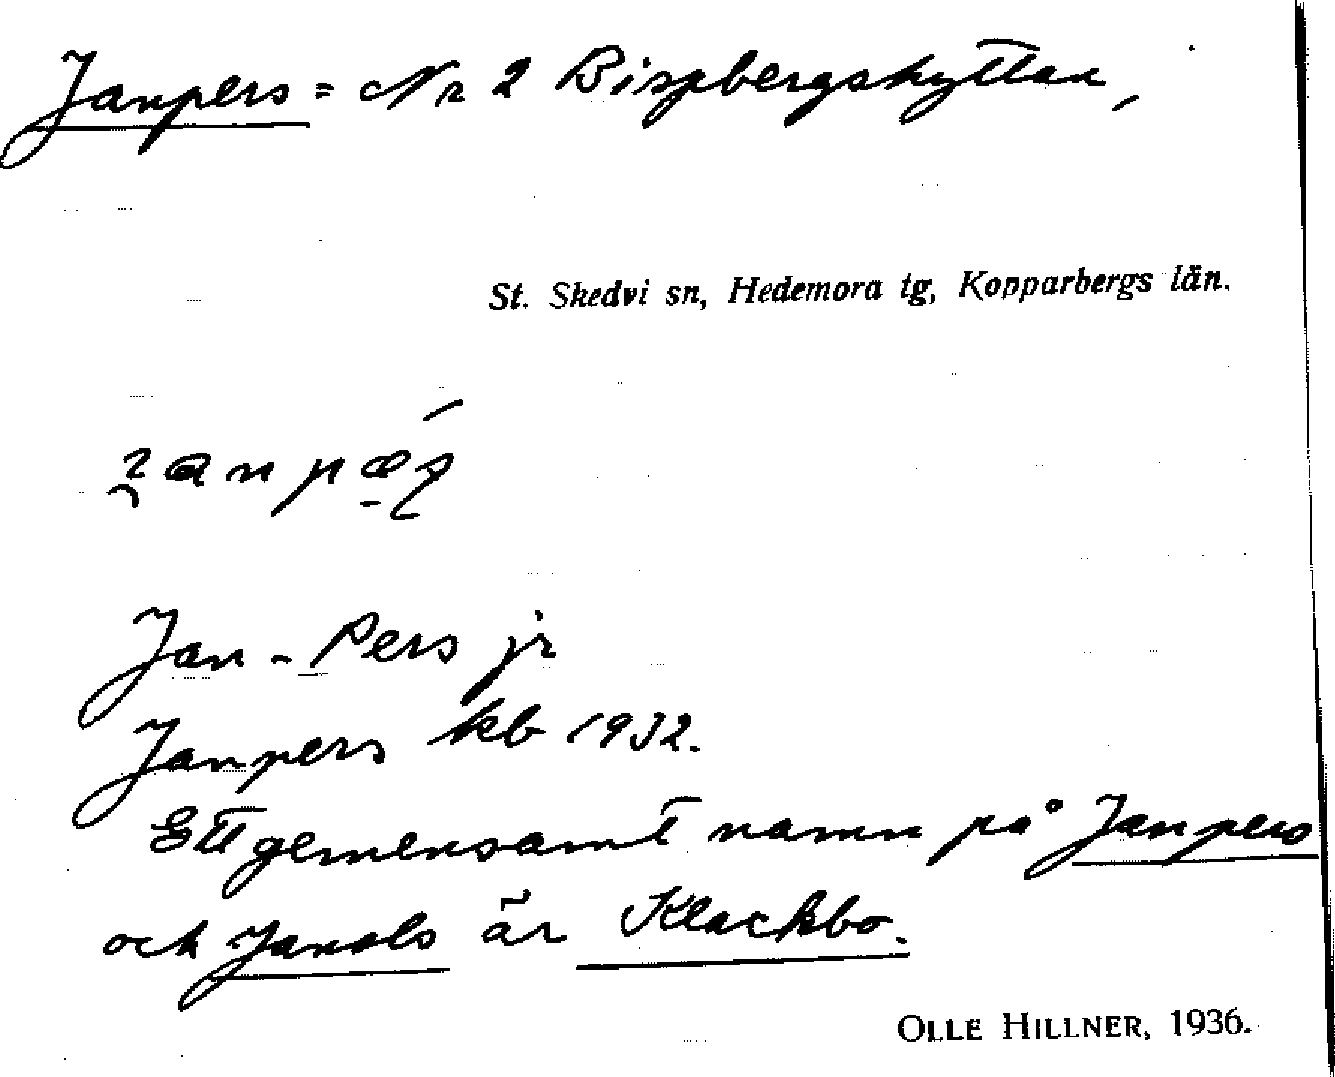 Janpers = Nr 2 Bispbergshyttan,
St. Skedvi sn, Hedemora tg, Kopparbergs län.
Jan-Pers jr
Janpers kb 1932.
Ett gemensamt namn på Janpers
och Janols är Klackbo.
OLLE HILLNER, 1936.